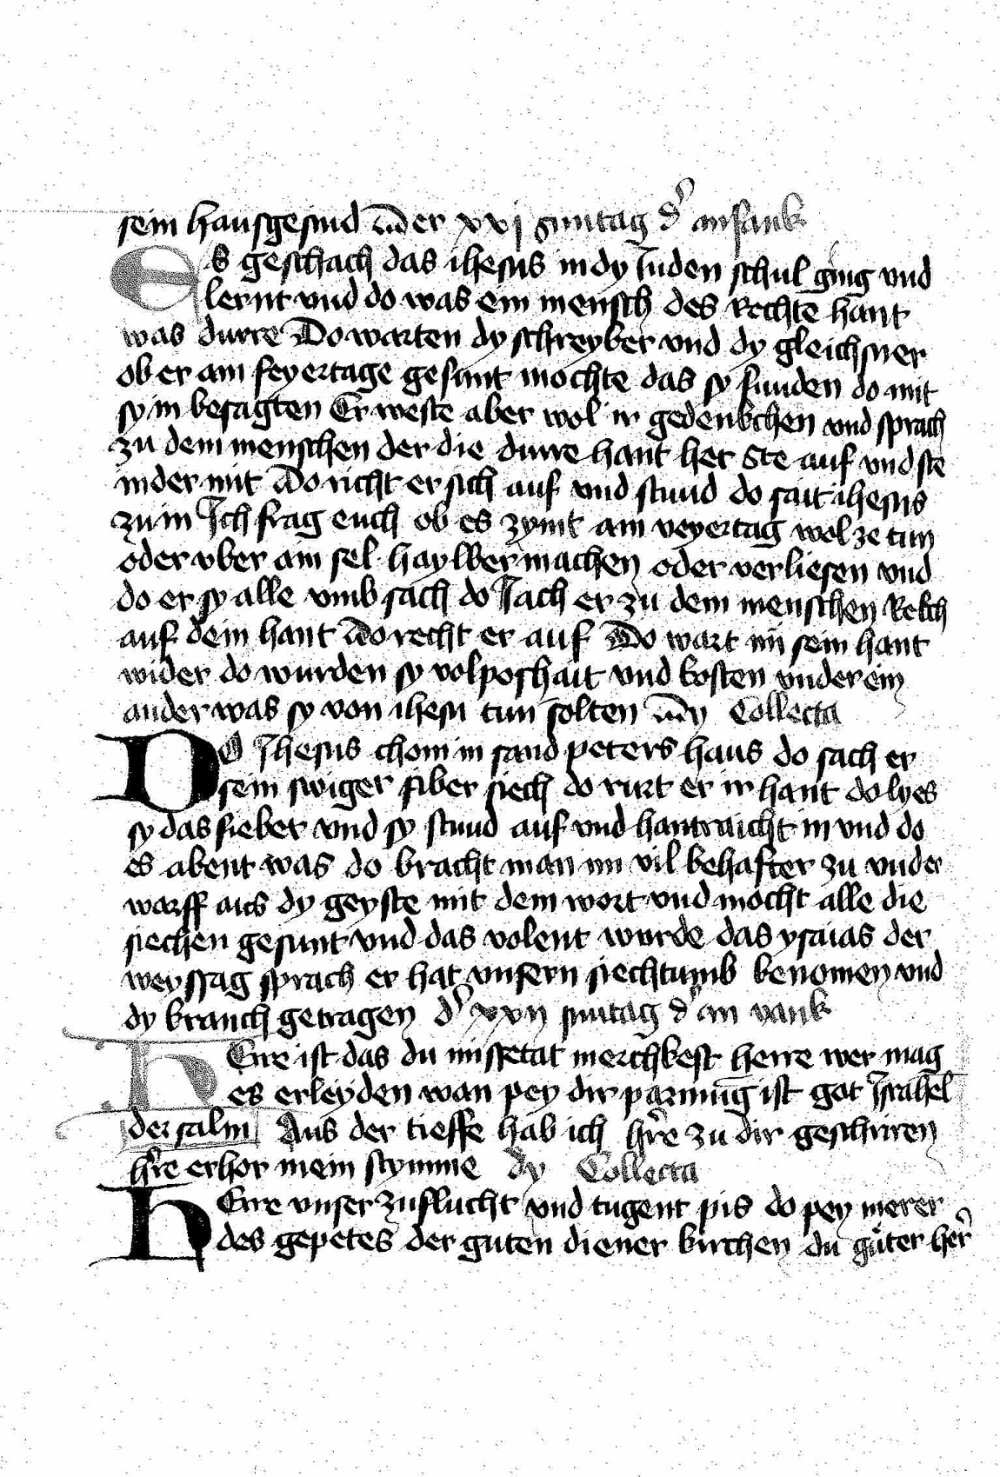 sein hausgesind Der xxj suntag d' anfank
Es geschach das ihesus in dy Juden schul ging vnd
lernt vnd do was ein mensch des Rechte hant
was durre Do warten dy schreyber vnd dy gleichsner
ob er am feyertage gesunt mochte das sy funden do mit
sy in besagten Er weste aber wol ir gedenkchen vnd sprach
zu dem menschen der die durre hant het Ste auf vnd ste
in der mit Do richt er sich auf vnd stund do sait ihesus
zu in Ich frag euch ob es zymt am veyertag wol ze tun
oder vber am sel haylber machen oder verliesen vnd
do er sy alle vmb sach do Jach er zu dem menschen Rekch
auf dein hant Do recht er auf Do wart im sein hant
wider do wurden sy vol poshait vnd kosten vnder ein
ander was sy von ihesu tun solten Dy Collecta
DO Jhesus chom in sand peters haus do sach er
sein swiger fiber siech do rurt er ir hant do lyes
sy das fieber vnd sy stund auf vnd hantraicht in vnd do
es abent was do bracht man im vil behafter zu vnd er
warff aus dy geyste mit dem wort vnd mocht alle die
siechen gesunt vnd das volent wurde das ysaias der
weyssag sprach er hat vnsern siechtumb benomen vnd
dy kranch getragen d' xxij suntag d' an vank
HErre ist das du missetat merchkest herre wer mag
es erleyden wan pey dir parmug ist got Jsrahel
der salm Aus der tieffe hab ich h're zu dir geschriren
h're erhor mein stymme dy Collecta
HErre vnser zuflucht vnd tugent pis do pey merer
des gepetes der guten diener kirchen du guter her'